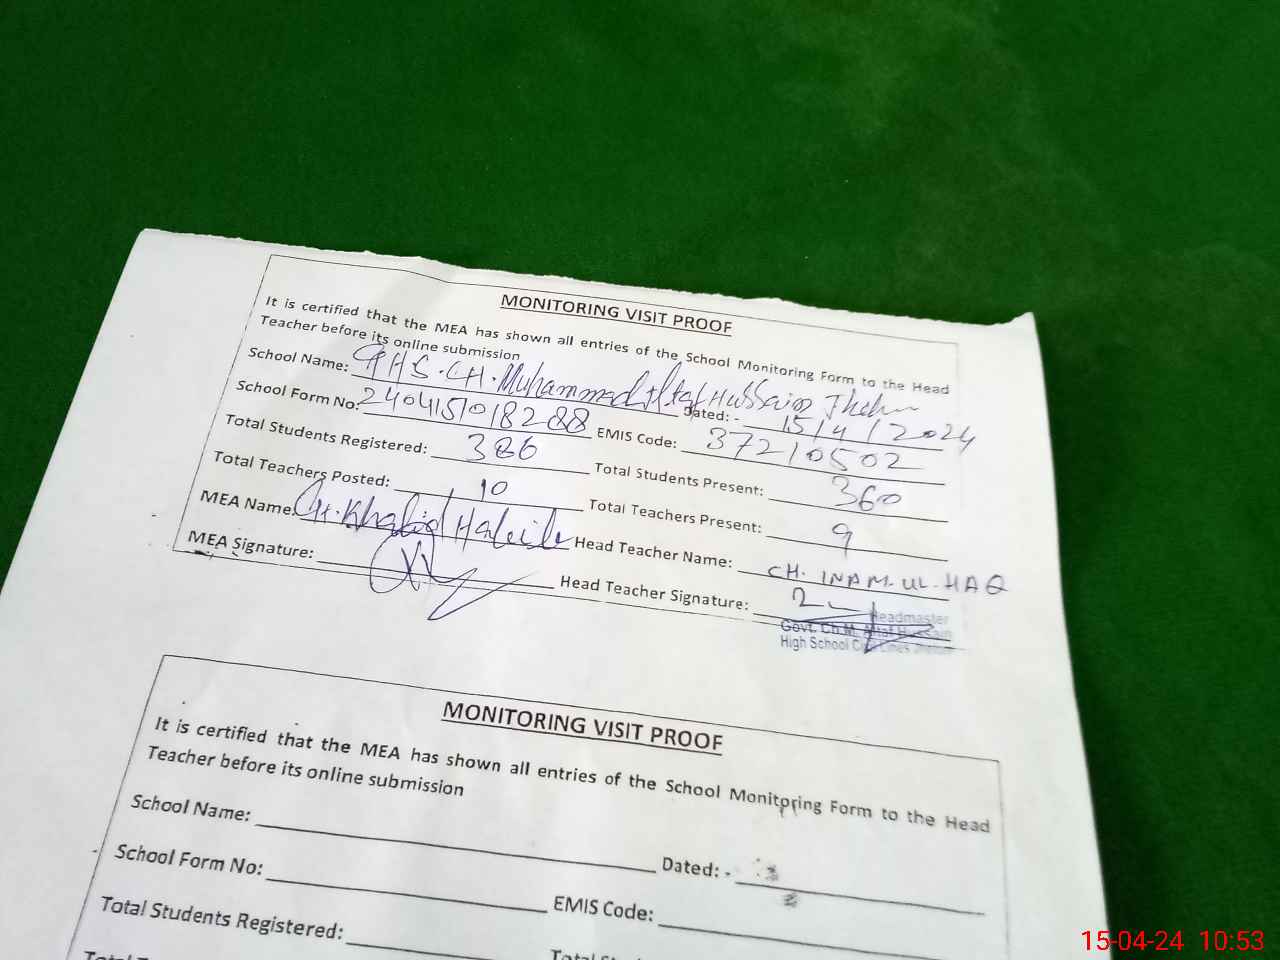 MONITORING VISIT PROOF
It is certified that the MEA has shown all entries of the School Monitoring Form to the Head
Teacher before its online submission
School Name: GHS. CH. Muhammad Altaf Hussain Dated: - 15/4/2024
School Form No: 240415018288 EMIS Code: 37210502
Total Students Registered: 386 Total Students Present: 360
Total Teachers Posted: 10 Total Teachers Present: 9
MEA Name: Ch. Khalid Head Teacher Name: CH. INAM-UL-HAQ
MEA Signature: Head Teacher Signature:
Headmaster
Govt. Ch.M. Altaf Hussain
High School Civil Lines
MONITORING VISIT PROOF
It is certified that the MEA has shown all entries of the School Monitoring Form to the Head
Teacher before its online submission
School Name: Dated: -
School Form No: EMIS Code:
Total Students Registered:
15-04-24 10:53